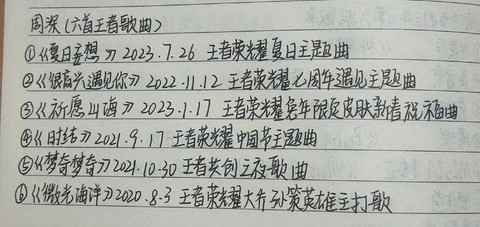 周深(六首王者歌曲)
①《夏日妄想》2023.7.26 王者荣耀夏日主题曲
②《很高兴遇见你》2022.11.12 王者荣耀七周年遇见主题曲
③《祈愿山海》2023.1.17 王者荣耀兔年限定皮肤新春祝福曲
④《时结》2021.9.17 王者荣耀中国节主题曲
⑤《梦奇梦奇》2021.10.30 王者共创之夜歌曲
⑥《微光海洋》2020.8.3 王者荣耀大乔孙策英雄主打歌